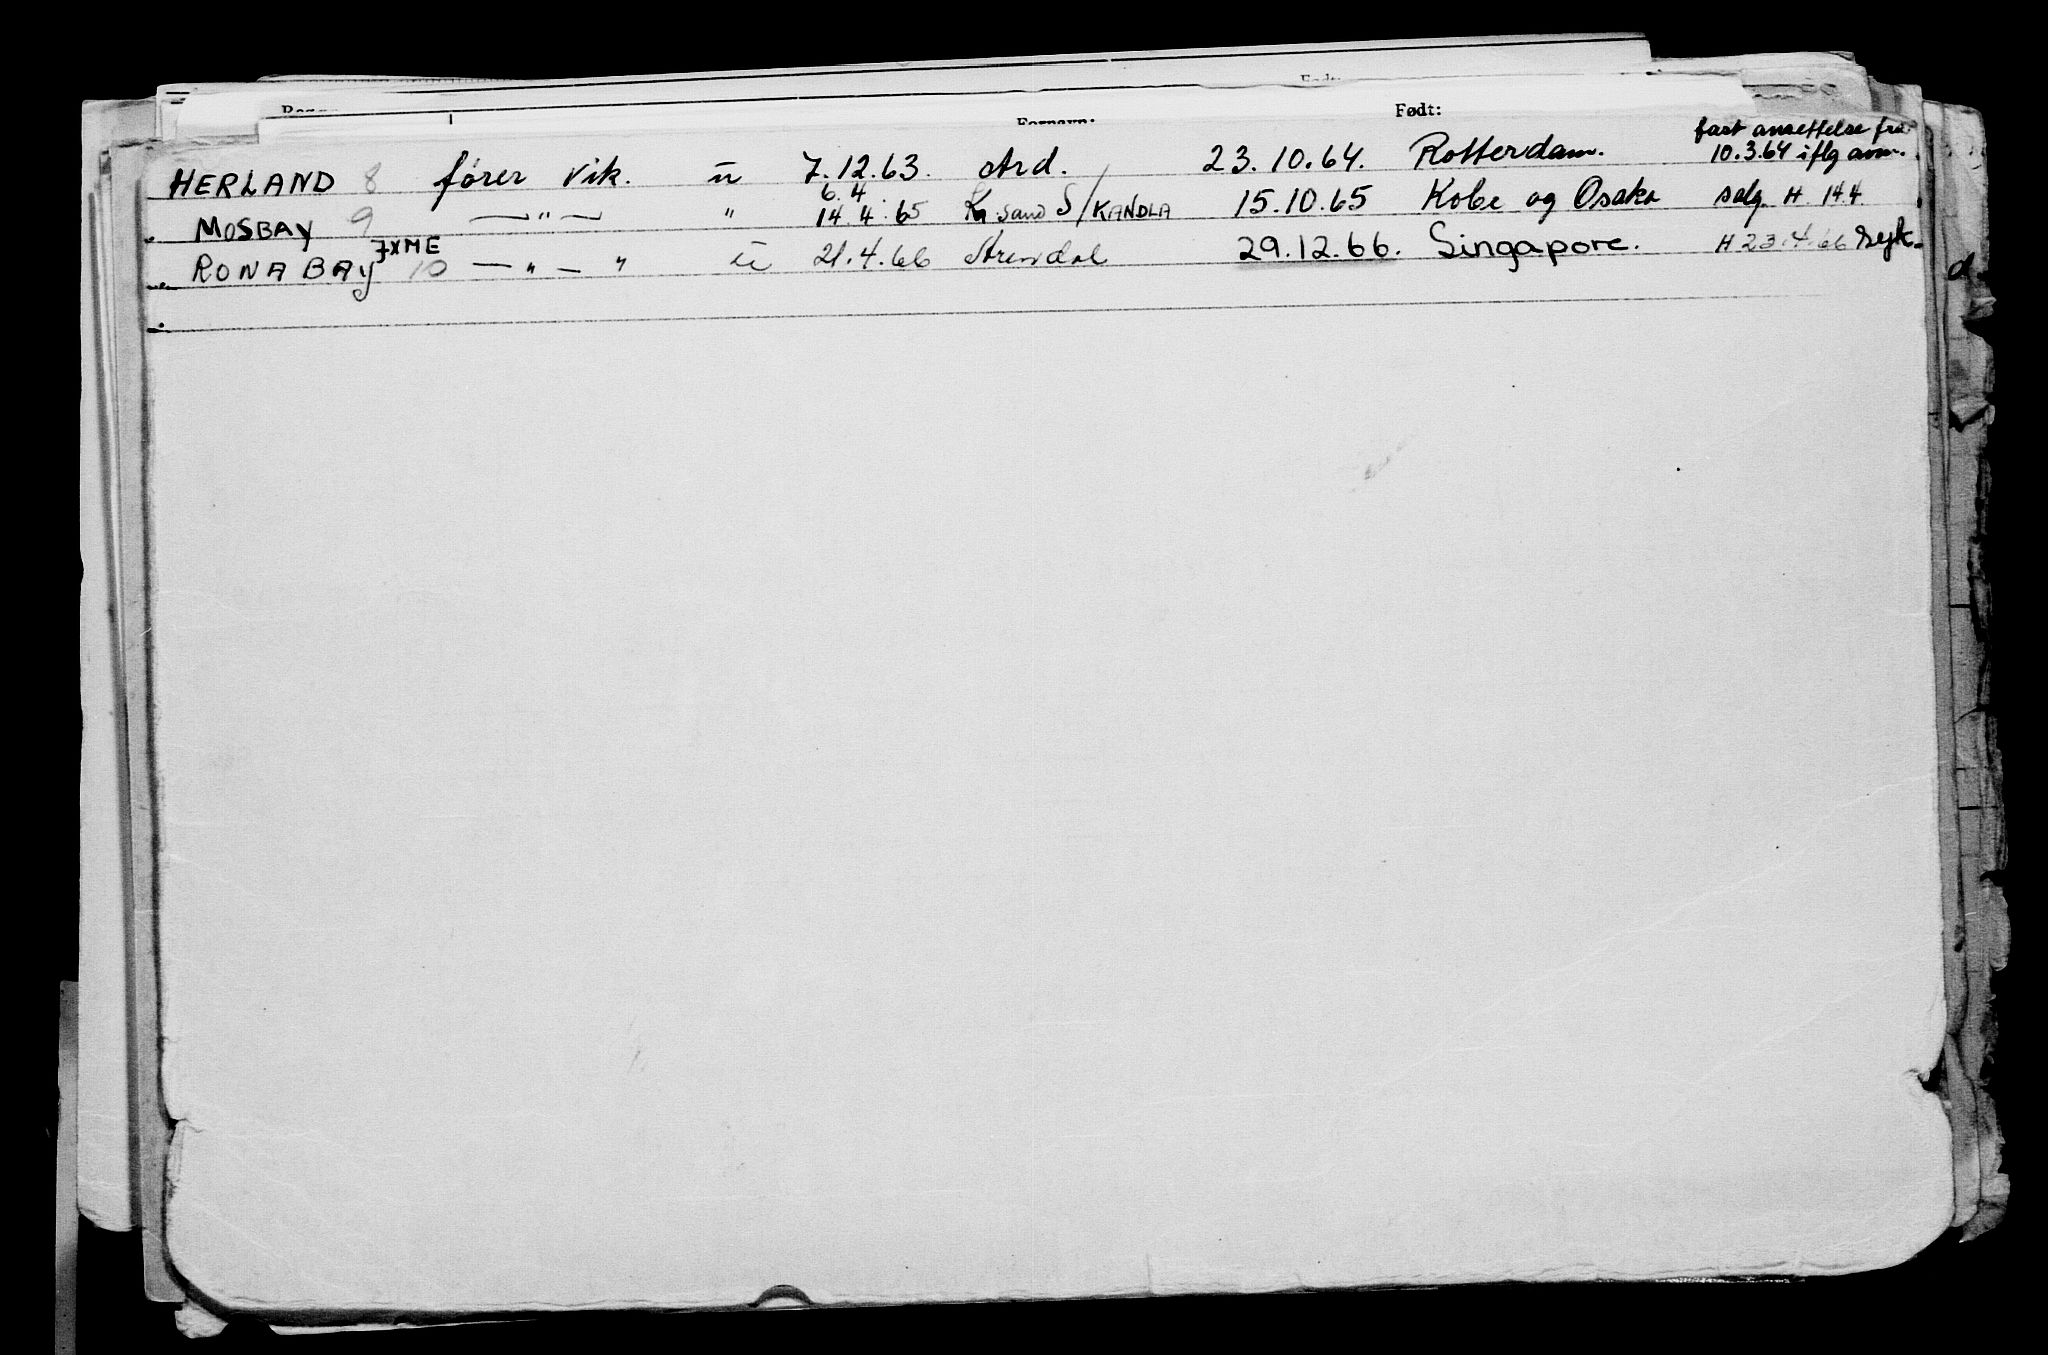 Født:
fast ansettelse fra
HERLAND 8 fører vik. u 7.12.63. Ard. 23.10.64. Rotterdam. 10.3.64 iflg anm.
6.4
MOSBAY 9 — " — " 14.4.65 Kr. sand S/KANDLA 15.10.65 Kobe og Osaka salg H 14.4
JXME
RONA BAY 10 — " — " u 21.4.66 Arendal 29.12.66. Singapore. H 23.4.66 syk.